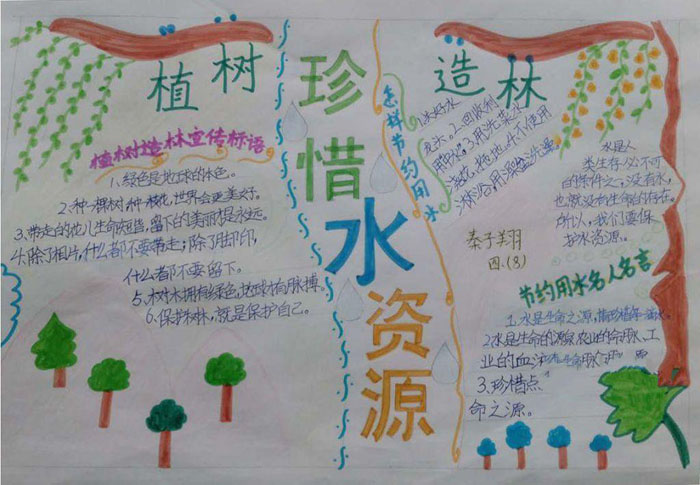 植树
造林
珍惜水资源
植树造林宣传标语
1、绿色是地球的本色。
2、种一棵树,种一枝花,世界会更美好。
3、带走的花儿生命短暂,留下的美丽才是永远。
4、除了相片,什么都不要带走;除了脚印,
什么都不要留下。
5、树木拥有绿色,地球才有脉搏。
6、保护树林,就是保护自己。
怎样节约用水
秦子翔
四.(8)
水是人
类生存必不可
的条件之一,没有水,
也就没有生命的存在。
所以,我们要保
护水资源。
节约用水名人名言
1、水是生命之源,
2、水是生命的源泉、农业的命脉、工
业的血液
3、珍惜点
命之源。